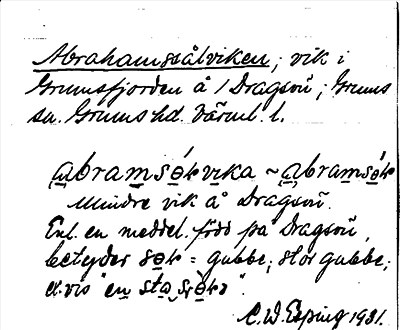 Abrahamssålviken; vik i
Grumsfjorden å / Dragsön; Grums
sn. Grums hd. Värml. l.
abramsəkvika ~ abramsək
Mindre vik å Dragsön.
Enl. en meddel. född på Dragsön,
betyder søk = gubbe; stor gubbe;
"en
C.W. Esping 1931.